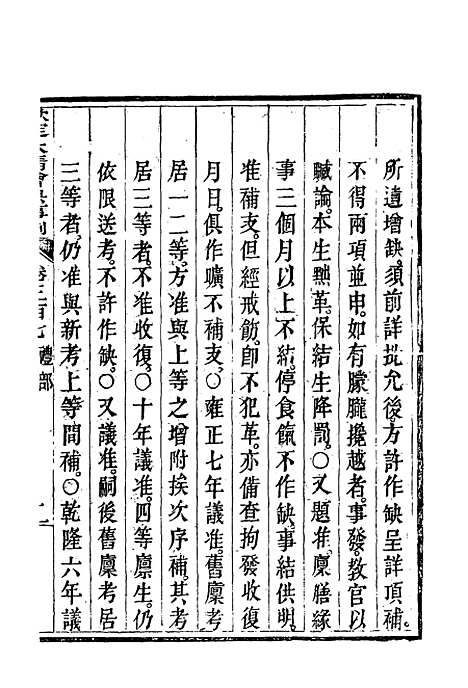 所遺增缺。須前詳批允後方許作缺呈詳頂補。
不得兩項並申。如有朦朧攙越者。事發。教官以
贓論。本生黜革。保結生降罰。○又題准。廩膳緣
事三個月以上不結。停食餼不作缺。事結供明。
准補支。但經戒飭。卽不犯革。亦備查拘發收復
月日。俱作曠不補支。○雍正七年議准。舊廩考
居一二等。方准與上等之增附挨次序補。其考
居三等者。不准收復。○十年議准。四等廩生。仍
依限送考。不許作缺。○又議准。嗣後舊廩考居
三等者。仍准與新考上等間補。○乾隆六年議
欽定大清會典事例 卷三百七 禮部